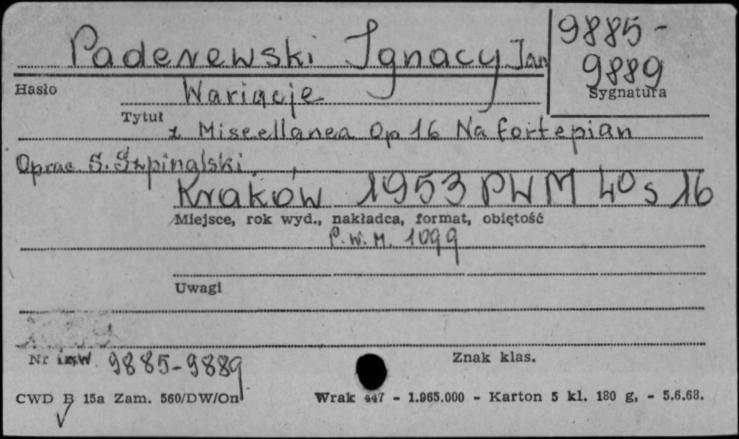 Paderewski Ignacy Jan
9885-
9889
Hasło
Sygnatura
Wariacje
Tytuł
z Miscellanea Op 16 Na fortepian
Oprac S. Szpinalski
Kraków 1953 PWM 40 s 16
Miejsce, rok wyd., nakładca, format, obiętość
P.W.M. 1099
Uwagi
Nr inw 9885-9889
Znak klas.
CWD B 15a Zam. 560/DW/On
Wrak 447 - 1.965.000 - Karton 5 kl. 180 g, - 5.6.68.